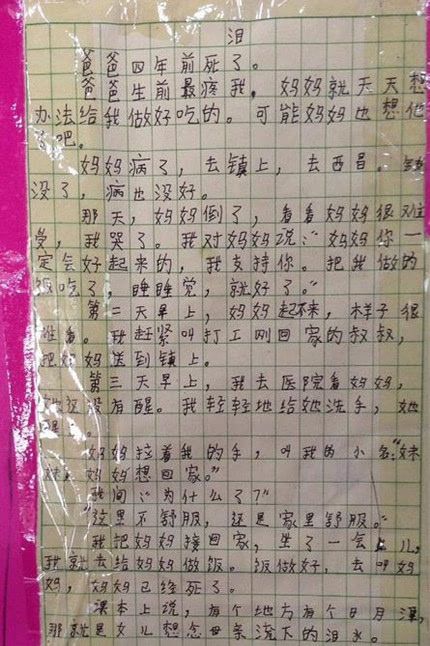 泪
爸爸四年前死了。
爸爸生前最疼我，妈妈就天天想
办法给我做好吃的。可能妈妈也想他
了吧。
妈妈病了，去镇上，去西昌。钱
没了，病也没好。
那天，妈妈倒了，看看妈妈很难
受，我哭了。我对妈妈说：“妈妈你一
定会好起来的，我支持你。把我做的
饭吃了，睡睡觉，就好了。”
第二天早上，妈妈起不来，样子很
难看。我赶紧叫打工刚回家的叔叔，
把妈妈送到镇上。
第三天早上，我去医院看妈妈，
没有醒。我轻轻地给她洗手，她
醒
妈妈拉着我的手，叫我的小名：“妹
妹，妈妈想回家。”
我问：“为什么了？”
“这里不舒服，还是家里舒服。”
我把妈妈接回家，坐了一会儿，
我就去给妈妈做饭。饭做好，去叫妈
妈，妈妈已经死了。
课本上说，有个地方有个日月潭，
那就是女儿想念母亲流下的泪水。